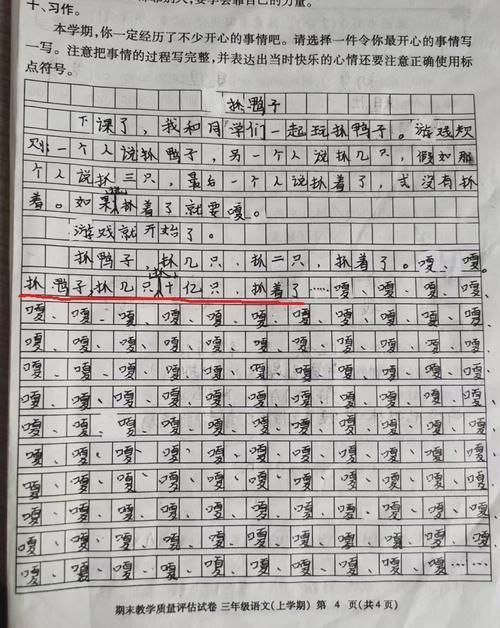 要学会靠自己的力量。
十、习作。
本学期，你一定经历了不少开心的事情吧。请选择一件令你最开心的事情写
一写。注意把事情的过程写完整，并表达出当时快乐的心情还要注意正确使用标
点符号。
抓鸭子
下课了，我和同学们一起玩抓鸭子。游戏规
则：一个人说抓鸭子，另一个人说抓几只，假如那
个人说抓三只，最后一个人说抓着了，或没有抓
着。如果抓着了就要嘎。
游戏就开始了。
抓鸭子，抓几只，抓二只，抓着了。嘎、嘎、
抓鸭子，抓几只，抓十亿只，抓着了……嘎、嘎、嘎、
嘎、嘎、嘎、嘎、嘎、嘎、嘎、嘎、嘎、嘎、嘎
嘎、嘎、嘎、嘎、嘎、嘎、嘎、嘎、嘎、嘎、嘎
嘎、嘎、嘎、嘎、嘎、嘎、嘎、嘎、嘎、嘎、嘎
嘎、嘎、嘎、嘎、嘎、嘎、嘎、嘎、嘎、嘎、嘎
嘎、嘎、嘎、嘎、嘎、嘎、嘎、嘎、嘎、嘎、嘎
嘎、嘎、嘎、嘎、嘎、嘎、嘎、嘎、嘎、嘎、嘎
嘎、嘎、嘎、嘎、嘎、嘎、嘎、嘎、嘎、嘎、嘎
嘎、嘎、嘎、嘎、嘎、嘎、嘎、嘎、嘎、嘎、嘎
嘎、嘎、嘎、嘎、嘎、嘎、嘎、嘎、嘎、嘎、嘎
嘎、嘎、嘎、嘎、嘎、嘎、嘎、嘎、嘎、嘎……
期末教学质量评估试卷 三年级语文(上学期) 第 4 页(共4页)